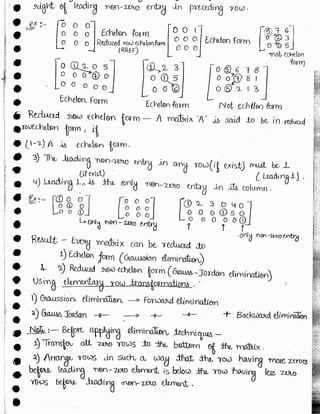 right of leading non-zero entry in preceding row.
ex:-
0 0 0
0 0 0
0 0 0
Echelon form
Reduced row echelon form
(RREF)
0 0 1
0 0 0
0 0 0
Echelon form
not echelon form
0 ① 2 0 5
0 0 0 ① 0
0 0 0 0 0
Echelon Form
① 2 3
0 ① 5
0 0
Echelon form
0 ⑤ 6 7 8
0 0 8 1
0 ⑤ 2 1 3
Not echelon form
Reduced row echelon form — A matrix 'A' is said to be in reduced
row echelon form, if
(1-2) A is echelon form.
3) The leading non-zero entry in any row (if exist) must be 1
(Leading 1).
(if exist)
4) Leading 1, is the only non-zero entry in its column.
Ex:-
① 0 0
0 ① 0
0 0 ①
↳ only non-zero entry
0 0 0
0 0 0
0 0 0
① 2 3 0 4 0
0 0 0 ① 5 0
0 0 0 0 0 ①
↑ ↑ ↑
only non-zero entry.
Result — Every matrix can be reduced to
1) Echelon form (Gaussian elimination)
2) Reduced row echelon form (Gauss-Jordan elimination)
Using elementary row transformations.
1) Gaussian elimination → Forward elimination
2) Gauss Jordan + Backward elimination
Note:— Before applying elimination techniques —
1) Transfer all zero rows to the bottom of the matrix.
2) Arrange rows in such a way that the row having more zeroes
before leading non-zero element is below the row having less zero
rows before leading non-zero element.